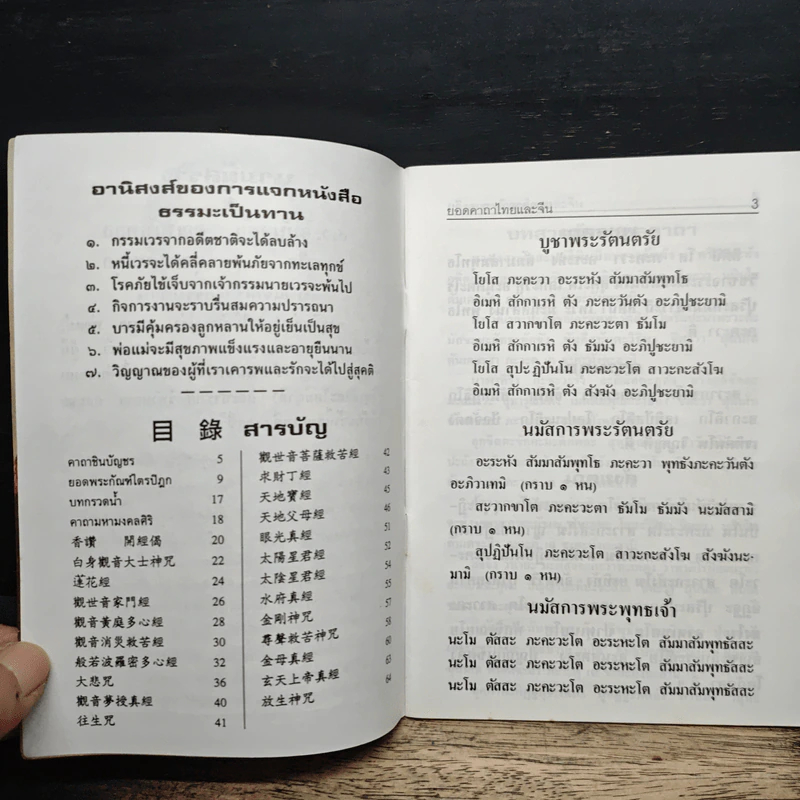 อานิสงส์ของการแจกหนังสือ
ธรรมะเป็นทาน
๑. กรรมเวรจากอดีตชาติจะได้ลบล้าง
๒. หนี้เวรจะได้คลี่คลายพ้นภัยจากทะเลทุกข์
๓. โรคภัยไข้เจ็บจากเจ้ากรรมนายเวรจะพ้นไป
๔. กิจการงานจะราบรื่นสมความปรารถนา
๕. บารมีคุ้มครองลูกหลานให้อยู่เย็นเป็นสุข
๖. พ่อแม่จะมีสุขภาพแข็งแรงและอายุยืนนาน
๗. วิญญาณของผู้ที่เราเคารพและรักจะได้ไปสู่สุคติ
目 錄 สารบัญ
คาถาชินบัญชร 5
ยอดพระกัณฑ์ไตรปิฎก 9
บทกรวดน้ำ 17
คาถามหามงคลศิริ 18
香讚 開經偈 20
白身觀音大士神咒 22
蓮花經 24
觀世音家門經 26
觀音黃庭多心經 28
觀音消災救苦經 30
般若波羅密多心經 32
大悲咒 36
觀音夢授真經 40
往生咒 41
觀世音菩薩救苦經 42
求財丁經 43
天地寶經 45
天地父母經 46
眼光真經 51
太陽星君經 52
太陰星君經 54
水府真經 55
金剛神咒 57
尊聲救苦神咒 58
金母真經 60
玄天上帝真經 63
放生神咒 64
ยอดคาถาไทยและจีน 3
บูชาพระรัตนตรัย
โยโส ภะคะวา อะระหัง สัมมาสัมพุทโธ
อิเมหิ สักกาเรหิ ตัง ภะคะวันตัง อะภิปูชะยามิ
โยโส สวากขาโต ภะคะวะตา ธัมโม
อิเมหิ สักกาเรหิ ตัง ธัมมัง อะภิปูชะยามิ
โยโส สุปะฏิปันโน ภะคะวะโต สาวะกะสังโฆ
อิเมหิ สักกาเรหิ ตัง สังฆัง อะภิปูชะยามิ
นมัสการพระรัตนตรัย
อะระหัง สัมมาสัมพุทโธ ภะคะวา พุทธังภะคะวันตัง
อะภิวาเทมิ (กราบ ๑ หน)
สะวากขาโต ภะคะวะตา ธัมโม ธัมมัง นะมัสสามิ
(กราบ ๑ หน)
สุปฏิปันโน ภะคะวะโต สาวะกะสังโฆ สังฆังนะ-
มามิ (กราบ ๑ หน)
นมัสการพระพุทธเจ้า
นะโม ตัสสะ ภะคะวะโต อะระหะโต สัมมาสัมพุทธัสสะ
นะโม ตัสสะ ภะคะวะโต อะระหะโต สัมมาสัมพุทธัสสะ
นะโม ตัสสะ ภะคะวะโต อะระหะโต สัมมาสัมพุทธัสสะ